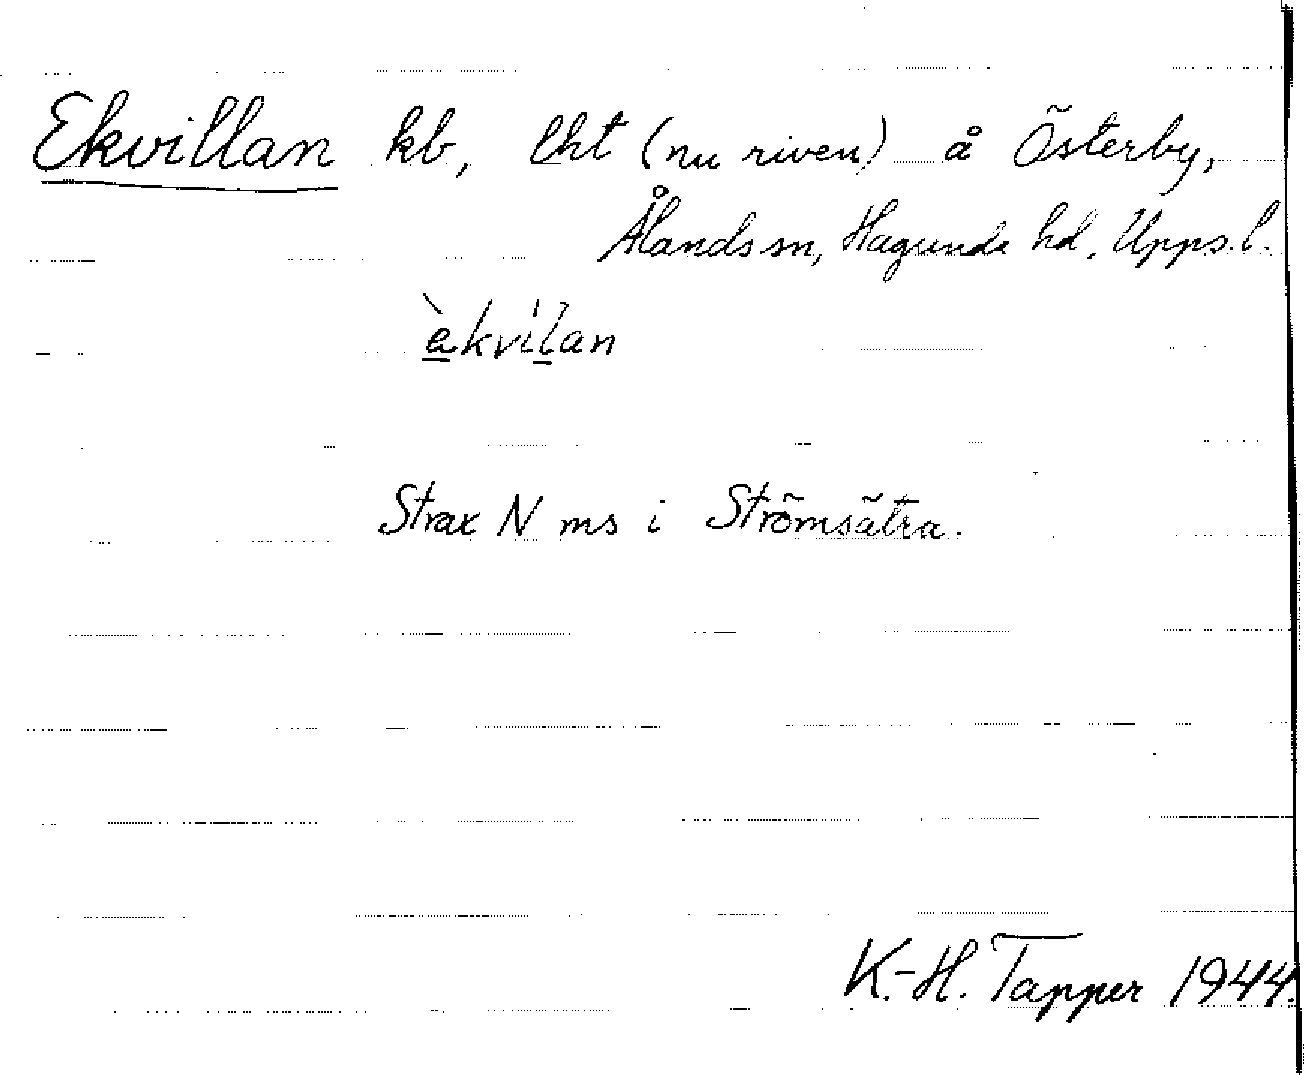 Ekvillan kb, lht (nu riven) å Österby,
Ålands sn, Hagunda hd, Upps. l.
èkvilan
Strax N ms i Strömsätra.
K.-H. Tapper 1944.